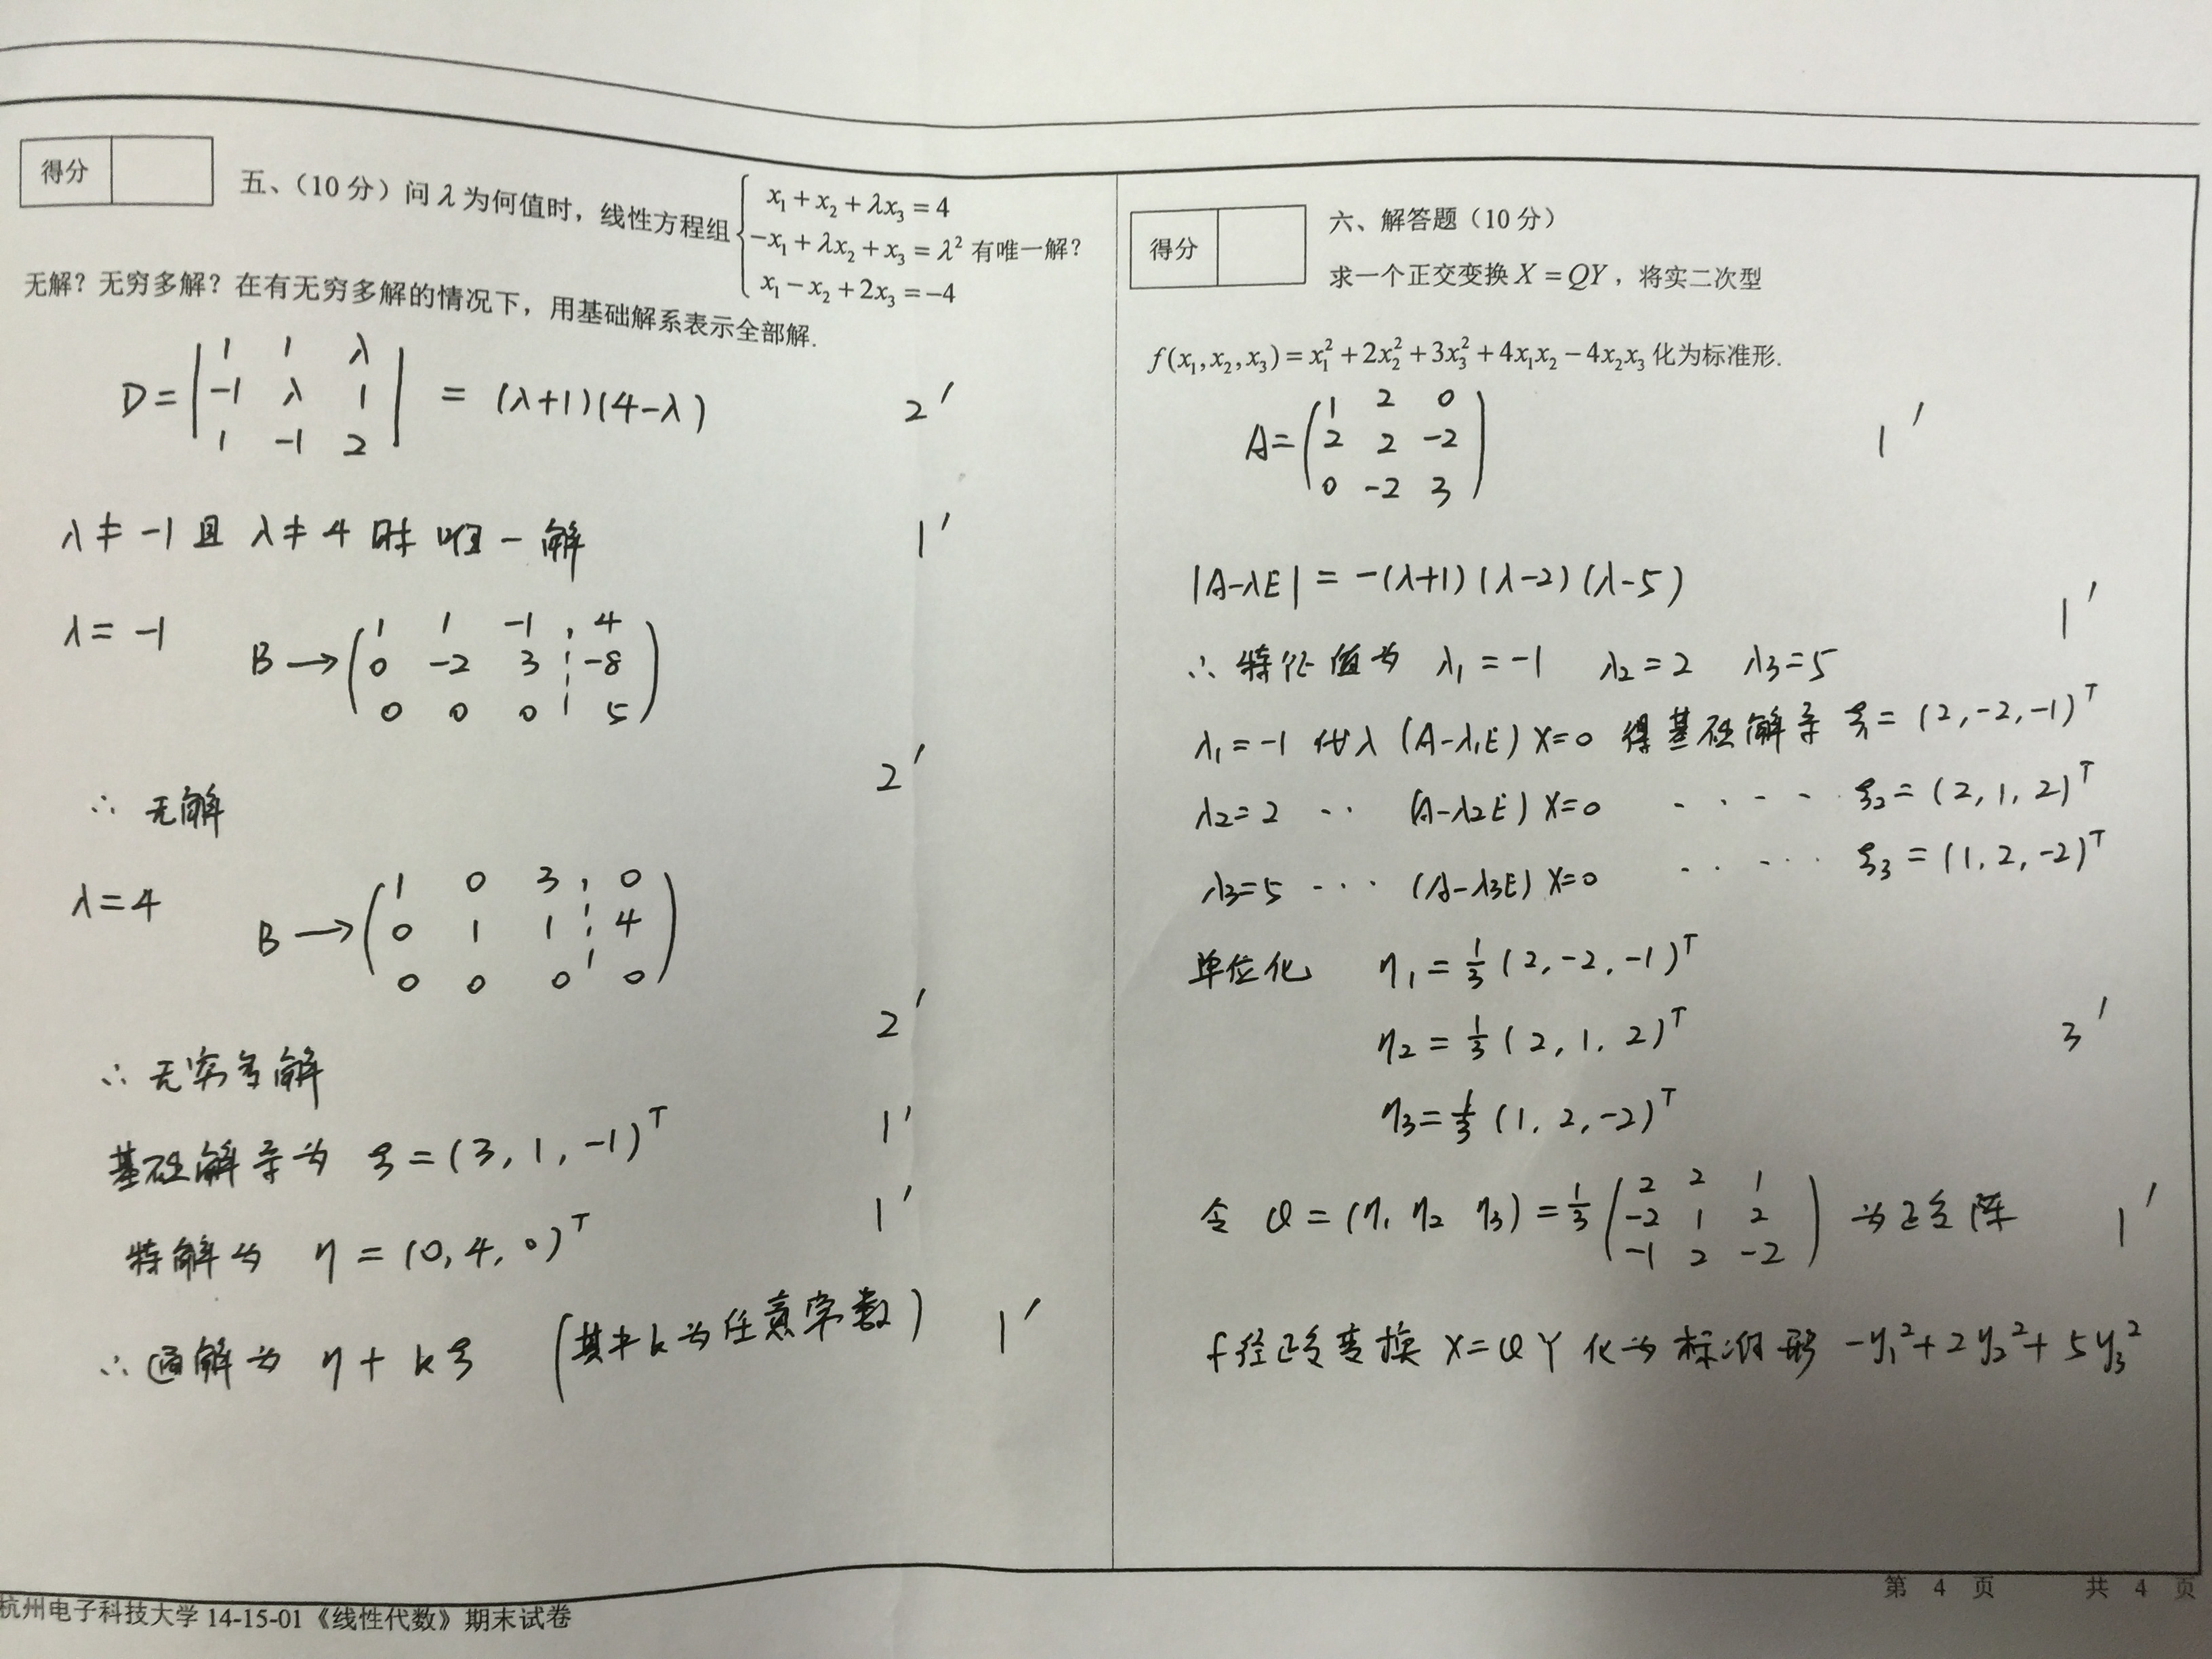 得分
五、（10 分）问 λ 为何值时，线性方程组 { x₁ + x₂ + λx₃ = 4
-x₁ + λx₂ + x₃ = λ² 有唯一解？
x₁ - x₂ + 2x₃ = -4
无解？无穷多解？在有无穷多解的情况下，用基础解系表示全部解.
D = | 1 1 λ
-1 λ 1 | = (λ+1)(4-λ) 2′
1 -1 2
λ ≠ -1 且 λ ≠ 4 时 唯一解 1′
λ = -1 B → ( 1 1 -1 ¦ 4
0 -2 3 ¦ -8
0 0 0 ¦ 5 )
∴ 无解 2′
λ = 4 B → ( 1 0 3 ¦ 0
0 1 1 ¦ 4
0 0 0 ¦ 0 )
∴ 无穷多解 2′
基础解系为 ξ = (3, 1, -1)ᵀ 1′
特解为 η = (0, 4, 0)ᵀ 1′
∴ 通解为 η + kξ (其中k为任意常数) 1′
杭州电子科技大学 14-15-01《线性代数》期末试卷
得分
六、解答题（10 分）
求一个正交变换 X = QY，将实二次型
f(x₁, x₂, x₃) = x₁² + 2x₂² + 3x₃² + 4x₁x₂ - 4x₂x₃ 化为标准形.
A = ( 1 2 0
2 2 -2
0 -2 3 ) 1′
|A-λE| = -(λ+1)(λ-2)(λ-5) 1′
∴ 特征值为 λ₁ = -1 λ₂ = 2 λ₃ = 5
λ₁ = -1 代入 (A-λ₁E) X=0 得基础解系 ξ₁ = (2, -2, -1)ᵀ
λ₂ = 2 ·· (A-λ₂E) X=0 ···· ξ₂ = (2, 1, 2)ᵀ
λ₃ = 5 ··· (A-λ₃E) X=0 ····· ξ₃ = (1, 2, -2)ᵀ
单位化 η₁ = 1/3 (2, -2, -1)ᵀ
η₂ = 1/3 (2, 1, 2)ᵀ 3′
η₃ = 1/3 (1, 2, -2)ᵀ
令 Q = (η₁ η₂ η₃) = 1/3 ( 2 2 1
-2 1 2
-1 2 -2 ) 为正交阵 1′
f经正交变换 X=QY 化为标准形 -y₁² + 2y₂² + 5y₃²
第 4 页 共 4 页